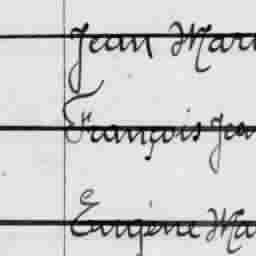 Jean Mari
François Jea
Eugène Ma